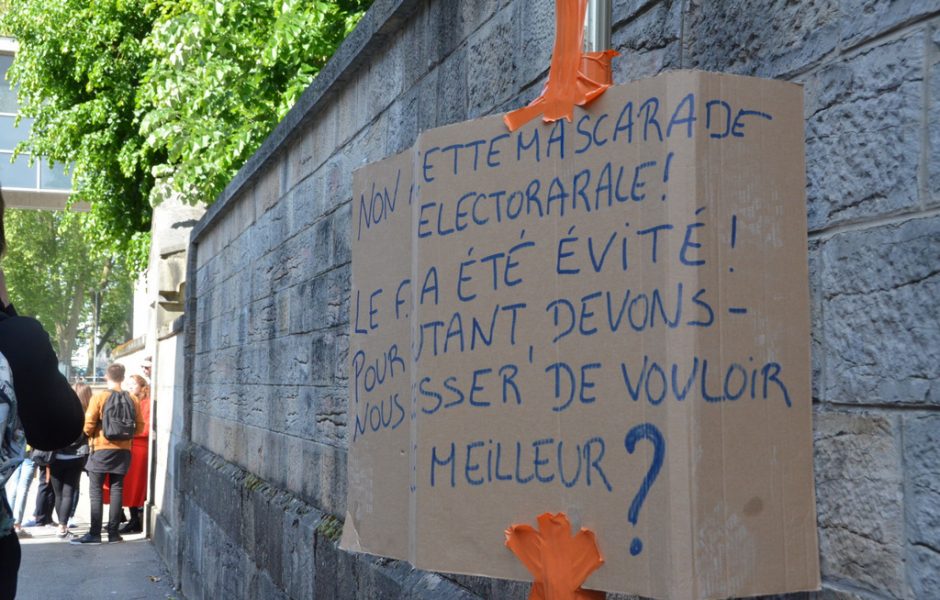 NON ETTE MASCARADE
ELECTORARALE !
LE F A ÉTÉ ÉVITÉ !
POURTANT, DEVONS-
NOUS SSER DE VOULOIR
MEILLEUR ?